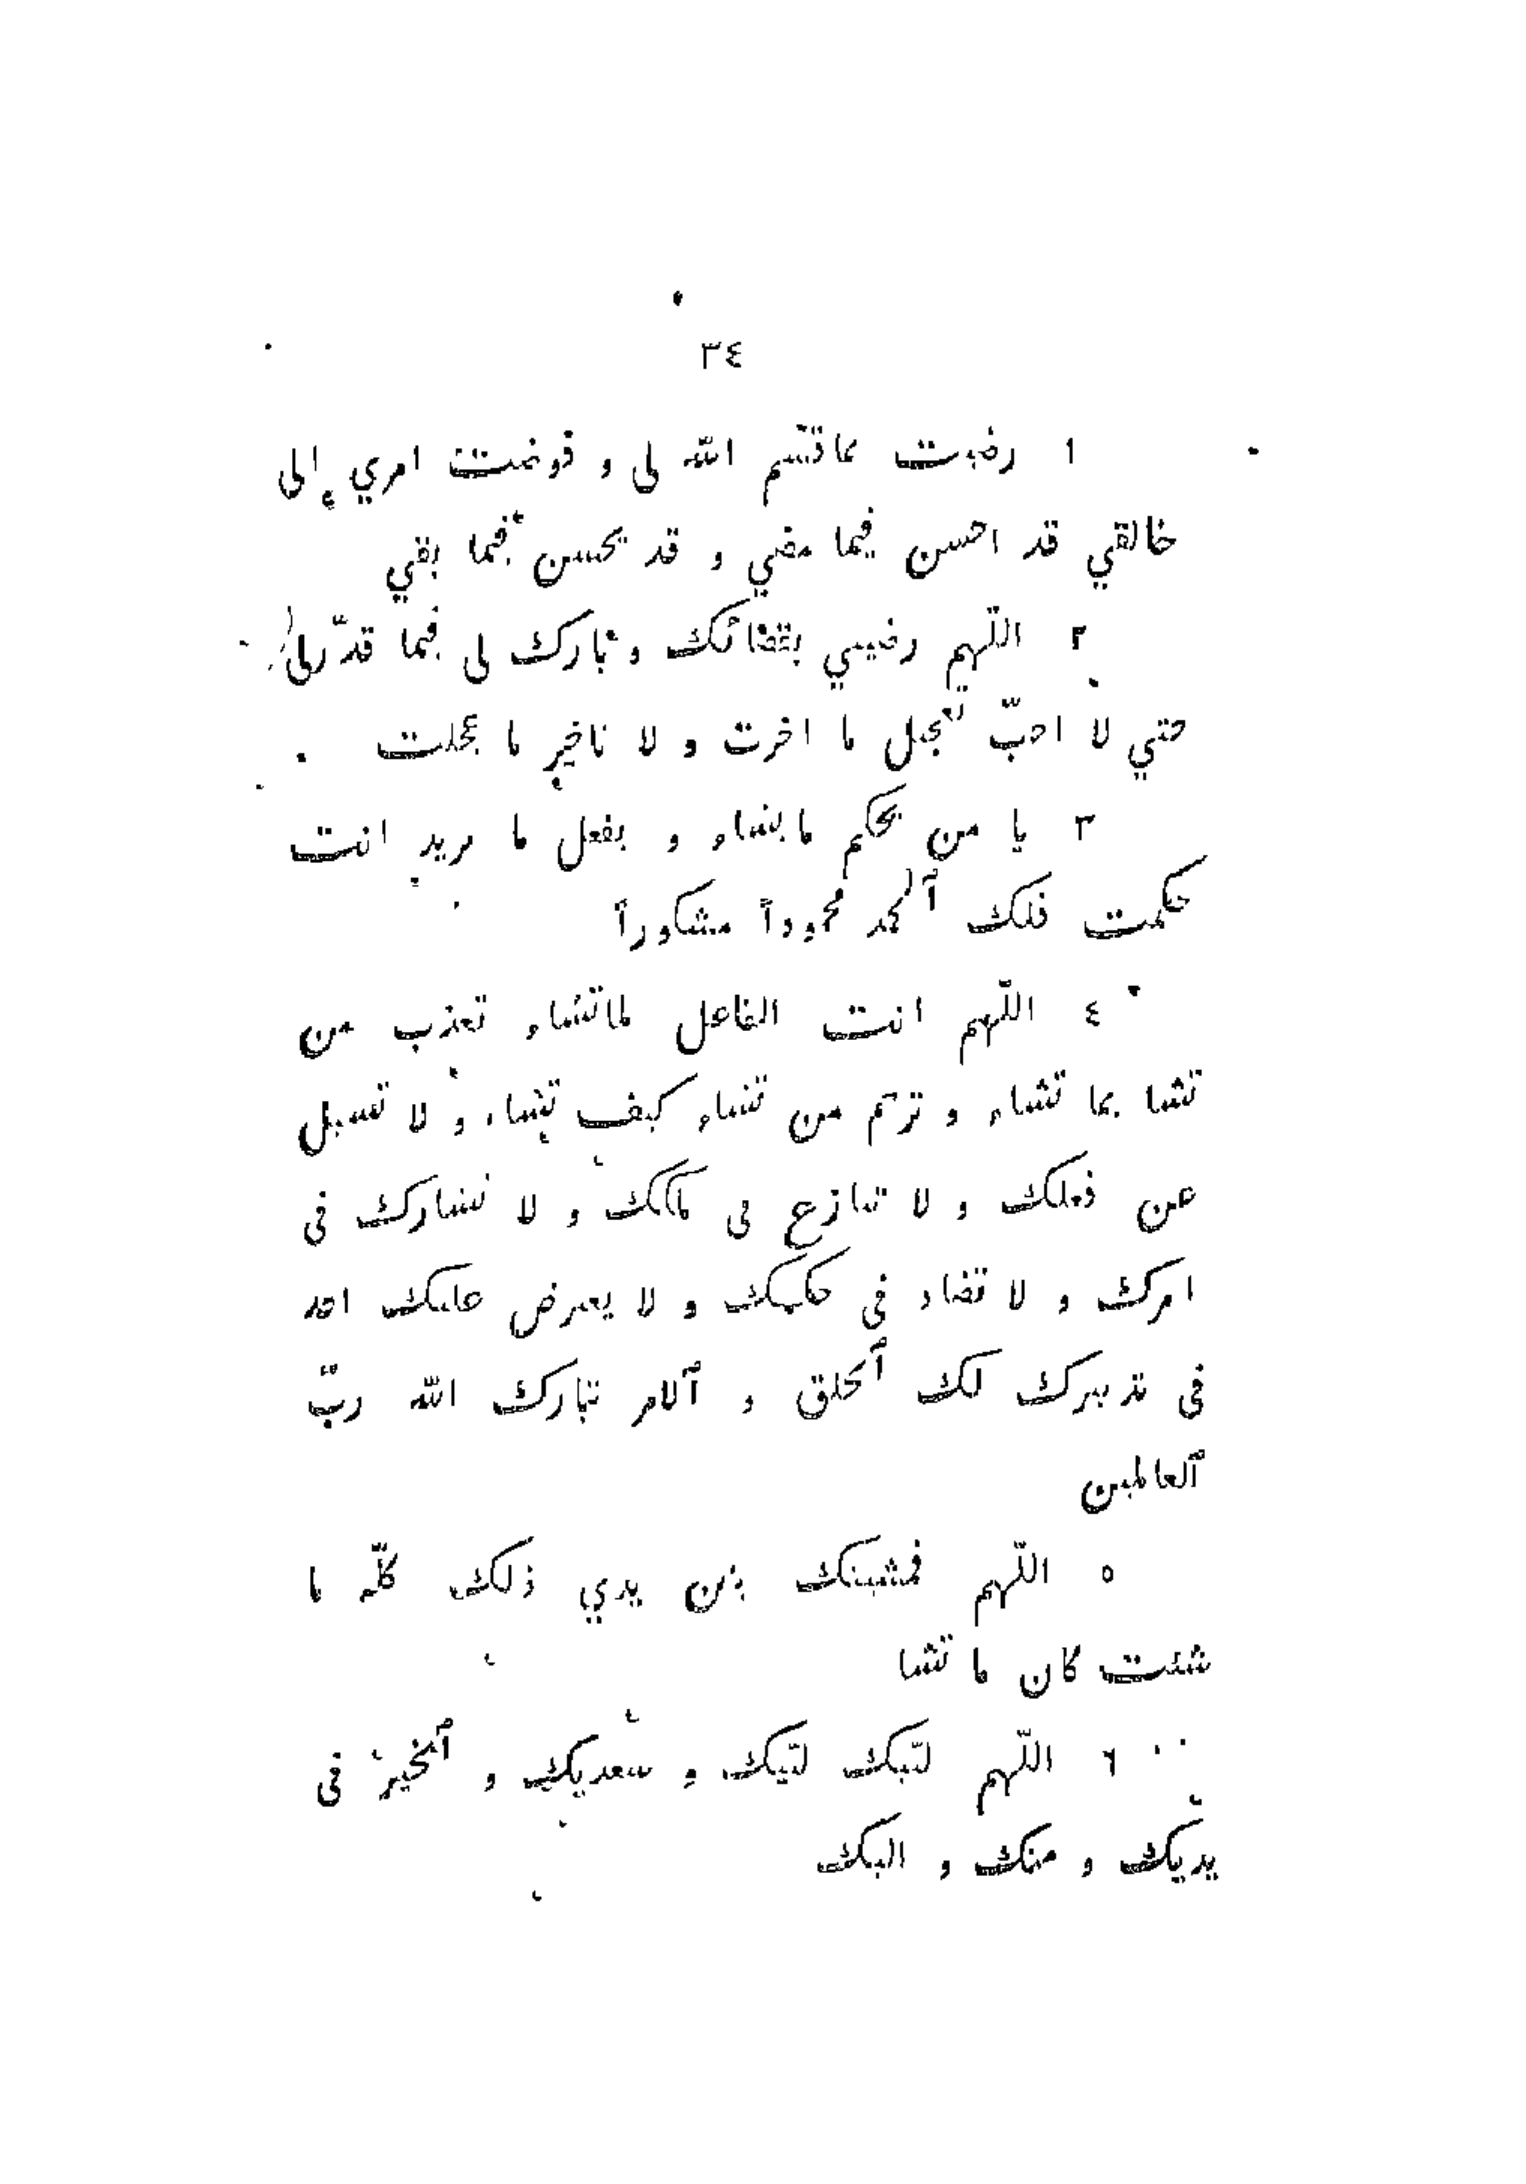 ٣٤
١ رضيت بماقسم الله لى و فوضت امري إلى
خالقي قد احسن فيما مضي و قد يحسن فيما بقي
٢ اللّهم رضيني بقضائك و بارك لى فيما قدّرلى
حتي لا احبّ تعجيل ما اخرت و لا تاخير ما عجلت
٣ يا من يحكم مايشاء و يفعل ما يريد انت
حكمت فلك ٱلحمد محموداً مشكوراً
٤ اللّهم انت الفاعل لماتشاء تعذب من
تشا بما تشاء و ترحم من تشاء كيف تشاء و لا تسيل
عن فعلك و لا تنازع فى ملكك و لا تشارك فى
امرك و لا تضاد فى حكمك و لا يعترض عليك احد
فى تدبيرك لك ٱلخلق و ٱلامر تبارك الله ربّ
ٱلعالمين
٥ اللّهم فمشيتك بين يدي ذلك كلّه ما
شئت كان ما تشا
٦ اللّهم لبّيك لبّيك و سعديك و ٱلخير فى
يديك و منك و اليك